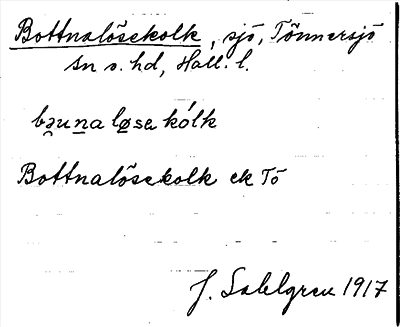 Bottnalösekolk, sjö, Tönnersjö
sn s. hd, Hall. l.
bəuna løsa kólk
Bottnalösekolk ek Tö
J. Sahlgren 1917